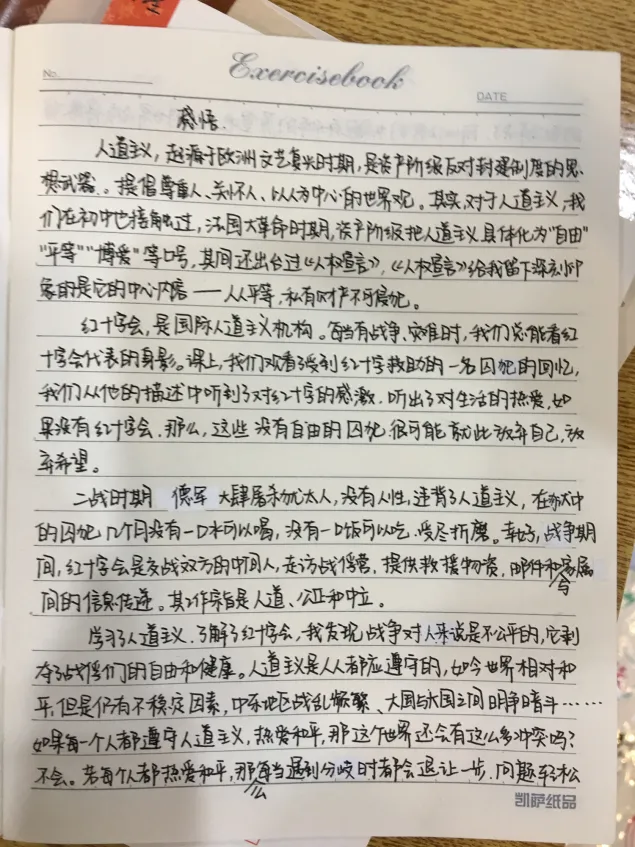 Exercisebook
No.
DATE
感悟.
人道主义，起源于欧洲文艺复兴时期，是资产阶级反对封建制度的思
想武器。提倡尊重人、关怀人、以人为中心的世界观。其实，对于人道主义，我
们在初中也接触过，法国大革命时期，资产阶级把人道主义具体化为“自由”
“平等”“博爱”等口号，其间还出台过《人权宣言》，《人权宣言》给我留下深刻印
象的是它的中心内容——人人平等，私有财产不可侵犯。
红十字会，是国际人道主义机构。每当有战争、灾难时，我们总能看红
十字会代表的身影。课上，我们观看了受到红十字救助的一名囚犯的回忆，
我们从他的描述中听到了对红十字的感激，听出了对生活的热爱，如
果没有红十字会，那么，这些没有自由的囚犯很可能就此放弃自己，放
弃希望。
二战时期 德军 大肆屠杀犹太人，没有人性，违背了人道主义，在狱中
的囚犯几个月没有一口水可以喝，没有一口饭可以吃，受尽折磨。幸好，战争期
间，红十字会是交战双方的中间人，走访战俘营，提供救援物资，邮件和家属
间的信息传递。其工作宗旨是人道、公正和中立。
学习了人道主义，了解了红十字会，我发现战争对人来说是不公平的，它剥
夺了战俘们的自由和健康。人道主义是人人都应遵守的，如今世界相对和
平，但是仍有不稳定因素，中东地区战乱频繁、大国与大国之间明争暗斗……
如果每一个人都遵守人道主义，热爱和平，那这个世界还会有这么多冲突吗？
不会。若每个人都热爱和平，那么每当遇到分歧时都会退让一步，问题轻松
凯萨纸品